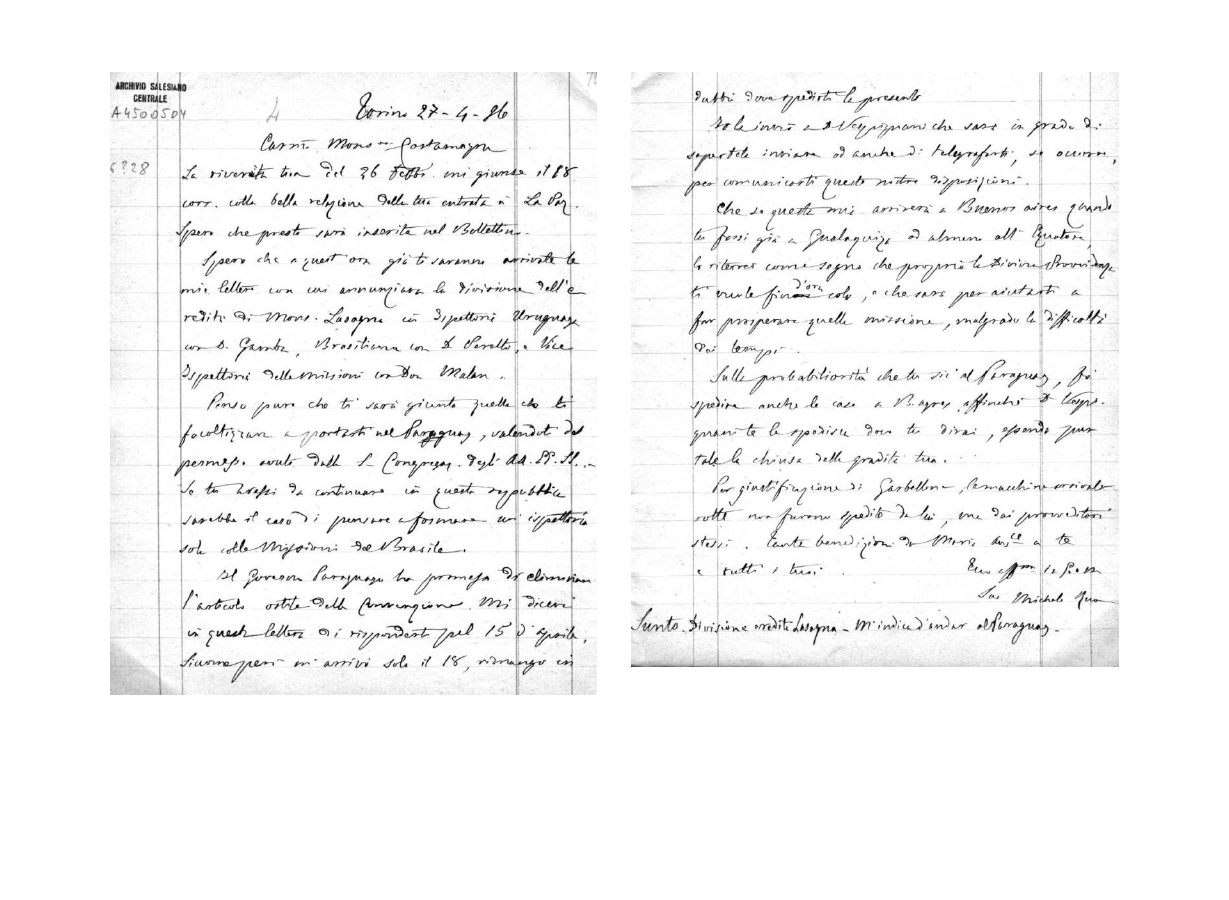 ARCHIVIO SALESIANO
CENTRALE
A4500504
4
Torino 27-4-96
Cariss. Mons.re Costamagna
La riverita tua del 26 Febb. mi giunse il 18
corr. colla bella relazione della tua entrata a La Paz.
Spero che presto sarà inserita nel Bollettino.
Spero che a quest'ora già ti saranno arrivate le
mie lettere con cui annunziava la divisione dell'e
redità di Mons. Lasagna in Ispettoria Uruguaya
con D. Gamba, Brasiliana con D. Peretto, e Vice
Ispettoria delle missioni con Don Malan.
Penso pure che ti sarà giunta quella che ti
facoltizzava a portarti nel Paraguay, valendoti del
permesso avuto dalla S. Congregaz. degli AA. EE. SS.
Se tu avessi da continuare in questa repubblica
sarebbe il caso di pensare a formare un'ispettoria
sola colle Missioni del Brasile.
Il Governo Paraguayo ha promesso di eliminare
l'articolo ostile della Convenzione. Mi dicevi
in questa lettera di risponderti pel 15 d'Aprile,
siccome però mi arrivò solo il 18, rimango in
dubbio dove spedirti la presente
Io la invio a D. Vespignani che sarà in grado di
sapertela inviare od anche di telegrafarti, se occorre,
per comunicarti queste nostre disposizioni.
Che se questa mia arriverà a Buenos aires quando
tu fossi già a Gualaquiza od almeno all'Equatore,
lo riterrei come segno che proprio la Divina Provvidenza
ti vuole fin d'ora colà, e che sarà per aiutarti a
far prosperare quella missione, malgrado la difficoltà
dei tempi.
Sulla probabiliorità che tu sii al Paraguay, fo
spedire anche le case a B. ayres affinché D. Vespi-
gnani te le spedisca dove tu dirai, essendo pur
tale la chiusa della gradita tua.
Per giustificazione di Garbellone, le macchine arrivate
rotte non furono spedite da lui, ma dai provveditori
stessi. Tante benedizioni da Maria Aus.ce a te
e a tutti i tuoi.
Tuo aff.mo in G. e M.
Sac. Michele Rua
Sunto. Divisione eredità Lasagna - M'indica d'andar al Paraguay.